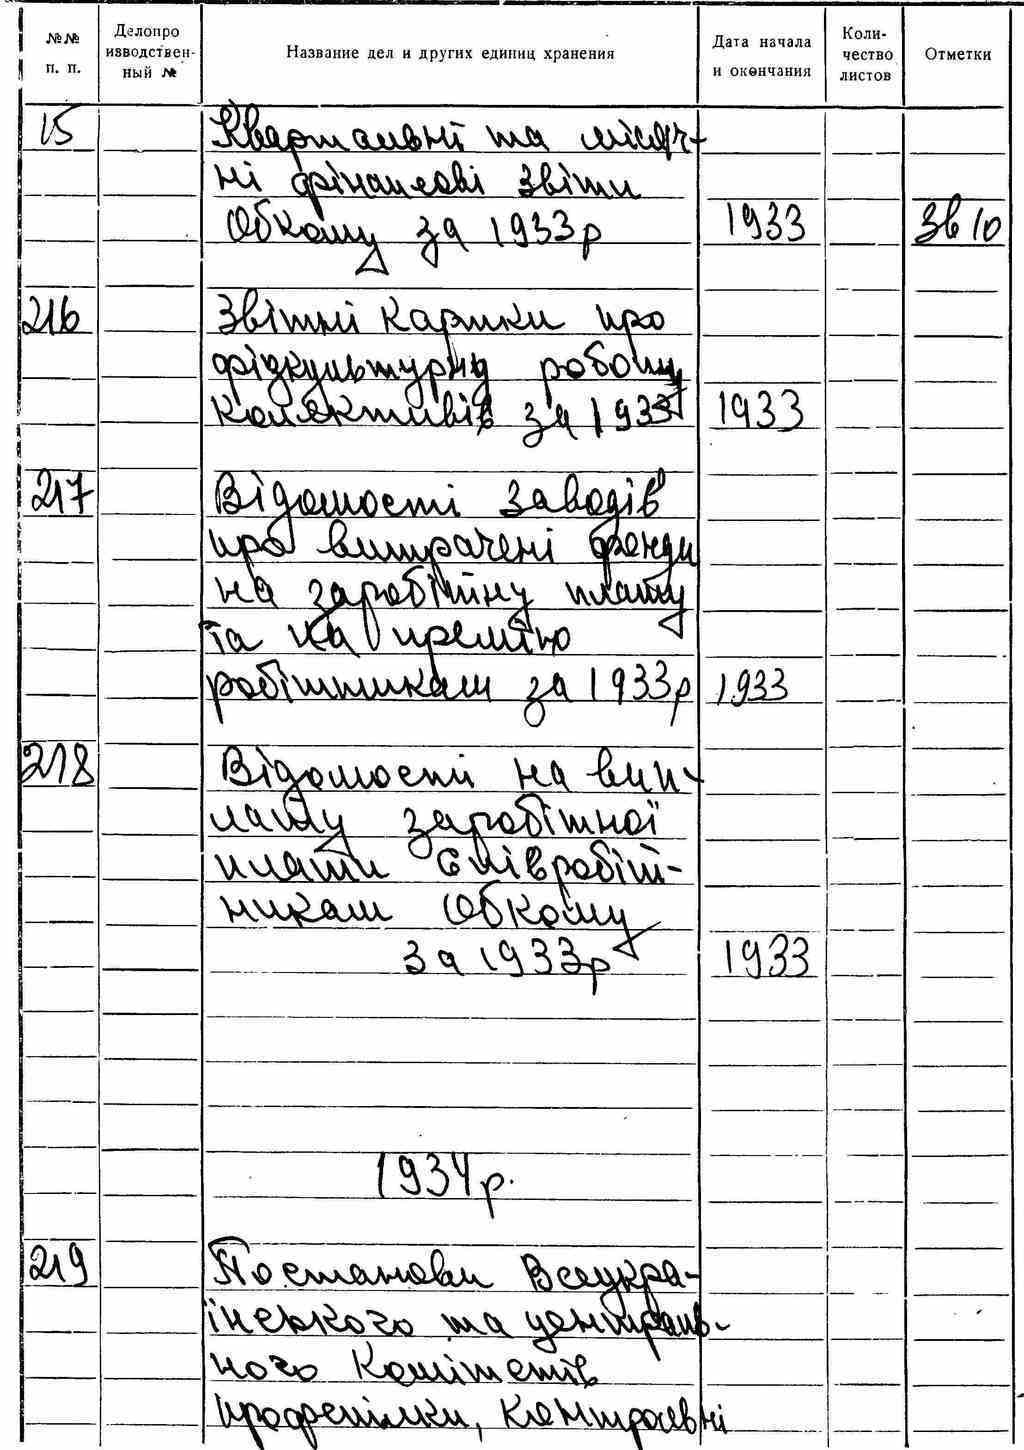 №№ п. п. Делопроизводствен-ный № Название дел и других единиц хранения Дата начала и окончания Коли-чество листов Отметки
15 Квартальні та місяч-
ні фінансові звіти
Обкому за 1933р 1933 Зв 10
216 Звітні картки про
фізкультурну роботу
колективів за 1933 1933
217 Відомості заводів
про витрачені фонди
на заробітну плату
та на премію
робітникам за 1933р 1933
218 Відомості на вип-
лату заробітної
плати співробіт-
никам Обкому
за 1933р 1933
1934р.
219 Постанови Всеукра-
їнського та централь-
ного Комітетів
профспілки,